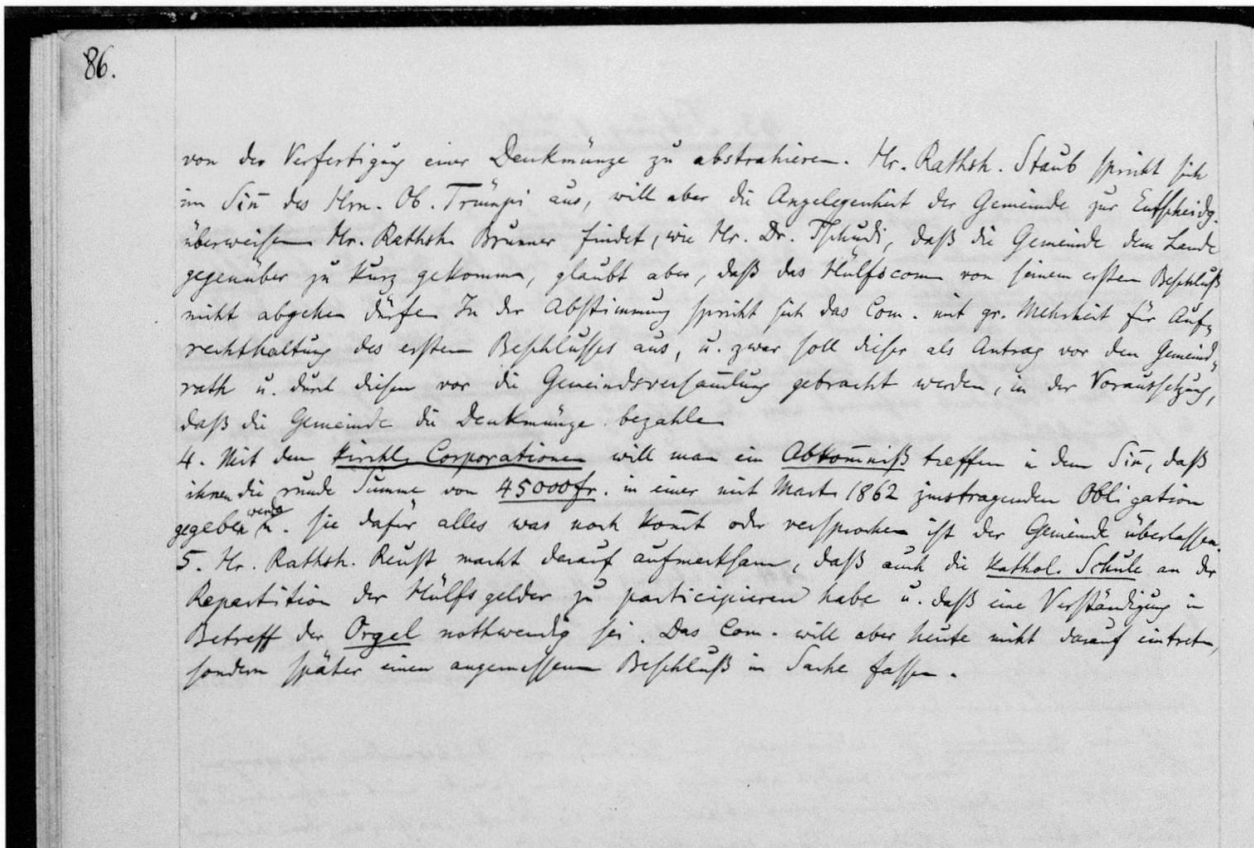 86.
von der Verfertigung einer Denkmünze zu abstrahieren. Hr. Rathsh. Staub spricht sich
im Sin̄ des Hrn. Ob. Trümpi aus, will aber die Angelegenheit der Gemeinde zur Entscheidg.
überweisen. Hr. Rathsh. Brunner findet, wie Hr. Dr. Tschudi, daß die Gemeinde dem Lande
gegenüber zu kurz gekommen, glaubt aber, daß das Hülfscom. von seinem ersten Beschluß
nicht abgehen dürfe. In der Abstimmung spricht sich das Com. mit gr. Mehrheit für Auf-
rechthaltung des ersten Beschlusses aus, u. zwar soll dieser als Antrag vor den Gemeind-
rath u. durch diesen vor die Gemeindsversam̄lung gebracht werden, in der Voraussetzung,
daß die Gemeinde die Denkmünze bezahle.
4. Mit den kirchl. Corporationen will man ein Abkom̄niß treffen in dem Sin̄, daß
ihnen die runde Summe von 45000fr. in einer mit Mart. 1862 zinstragenden Obligation
gegeben werde u. sie dafür alles was noch kom̄t oder versprochen ist der Gemeinde überlassen.
5. Hr. Rathsh. Reust macht darauf aufmerksam, daß auch die kathol. Schule an der
Repartition der Hülfsgelder zu participieren habe u. daß eine Verständigung in
Betreff der Orgel nothwendig sei. Das Com. will aber heute nicht darauf eintreten,
sondern später einen angemessenen Beschluß in Sache fassen.